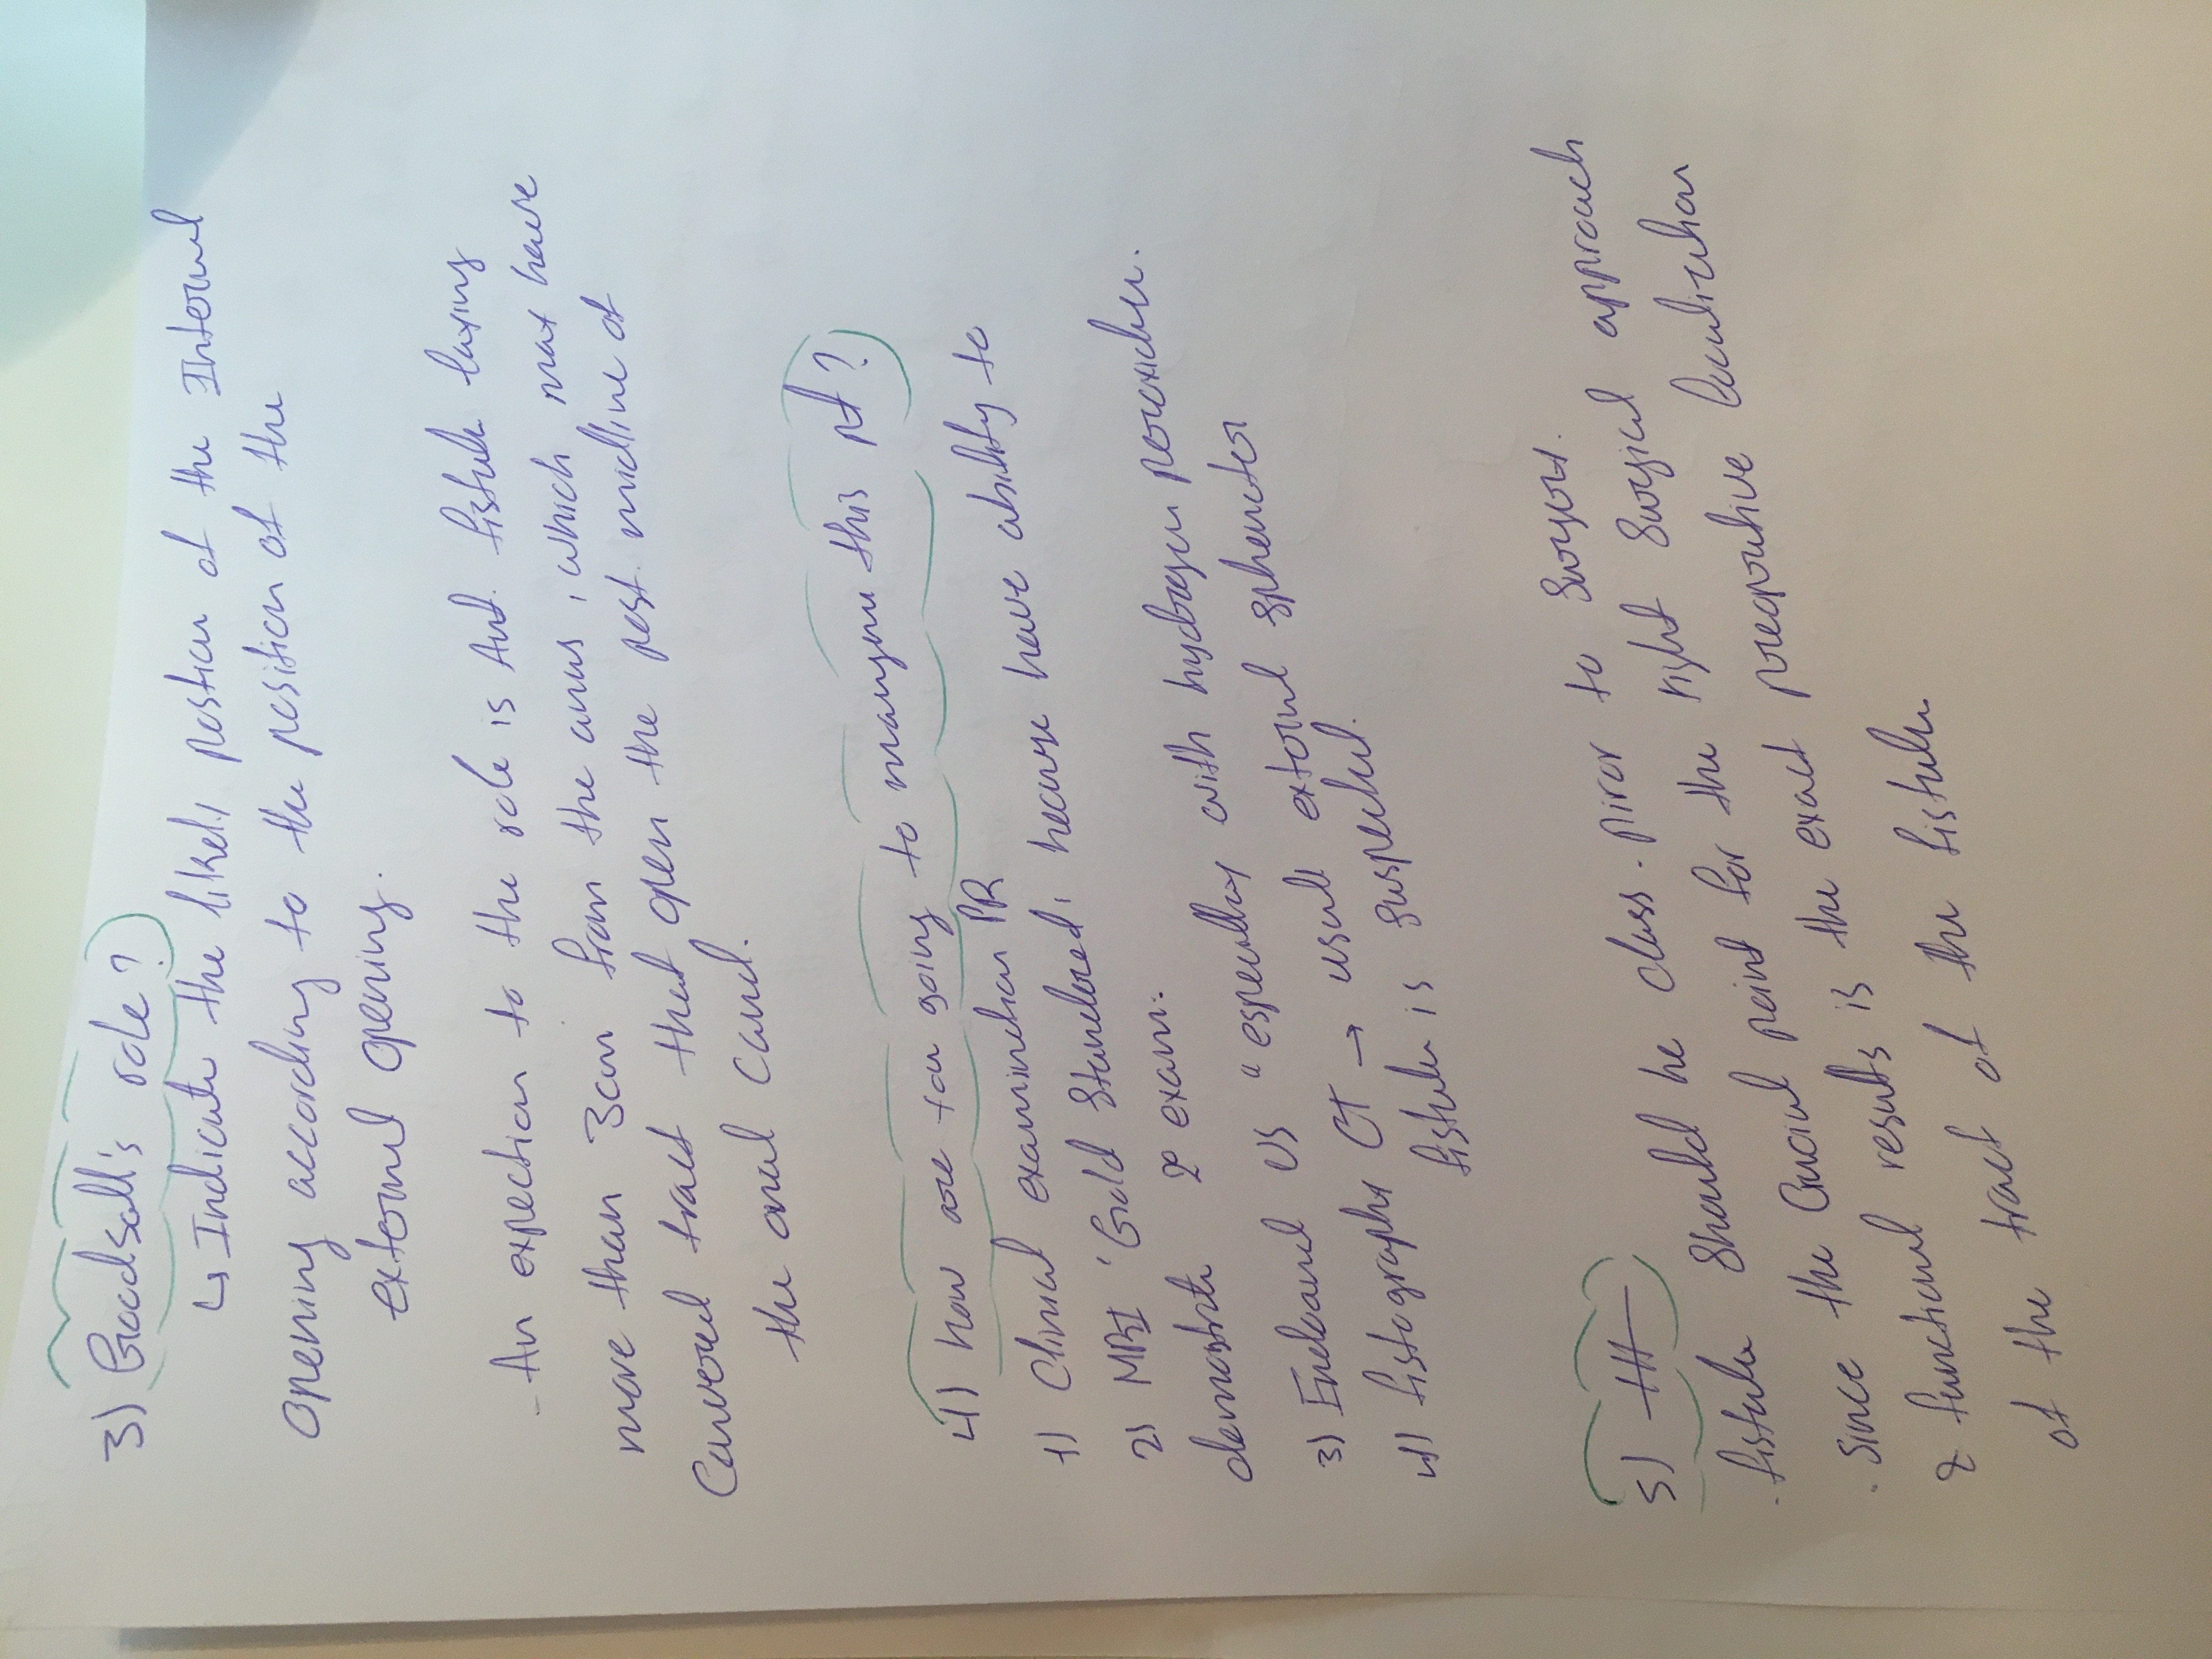 3) Goodsall's role?
↳ Indicate the likely position of the Internal
opening according to the position of the
external opening.
- An expection to the role is Ant. fistula laxing
more than 3cm from the anus, which max have
Curverod tract that open the post. midline of
the anal canal.
4) how are you going to mangme this pt?
1) Clinical examination PR
2) MRI "Gold Standered, hecause have ability to
demostrate 2° exam.
3) Endoanal US "especillay with hydrogen peroxidu.
4) fistography CT → usule external sphencter
fistula is suspected.
5) ttt
. fistula Should be class. piror to Surgert.
. since the Crucial point for the right Surgical approach
& functional results is the exact preopoutive localization
of the tract of the fistula